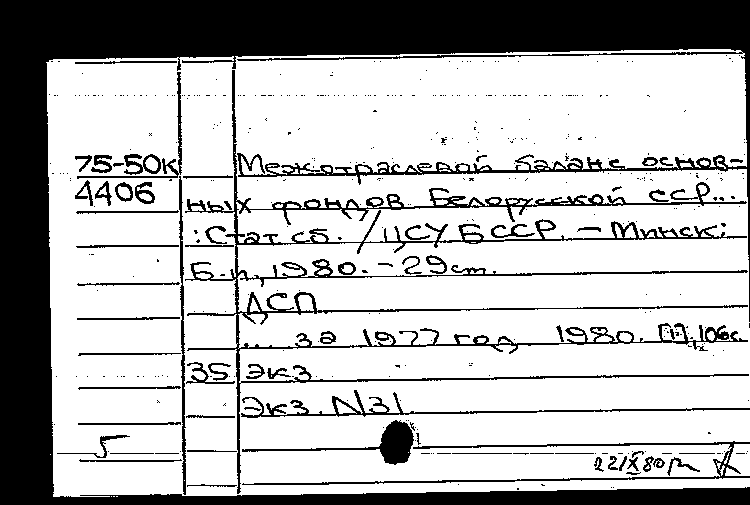 75-50к Межотраслевой баланс основ-
4406 ных фондов Белорусской ССР...
: Стат. сб. / ЦСУ БССР. - Минск:
Б. и., 1980. - 29 см.
ДСП
... за 1977 год. 1980. [1], 106 с.
35 экз.
Экз. N31
5 22/X 80